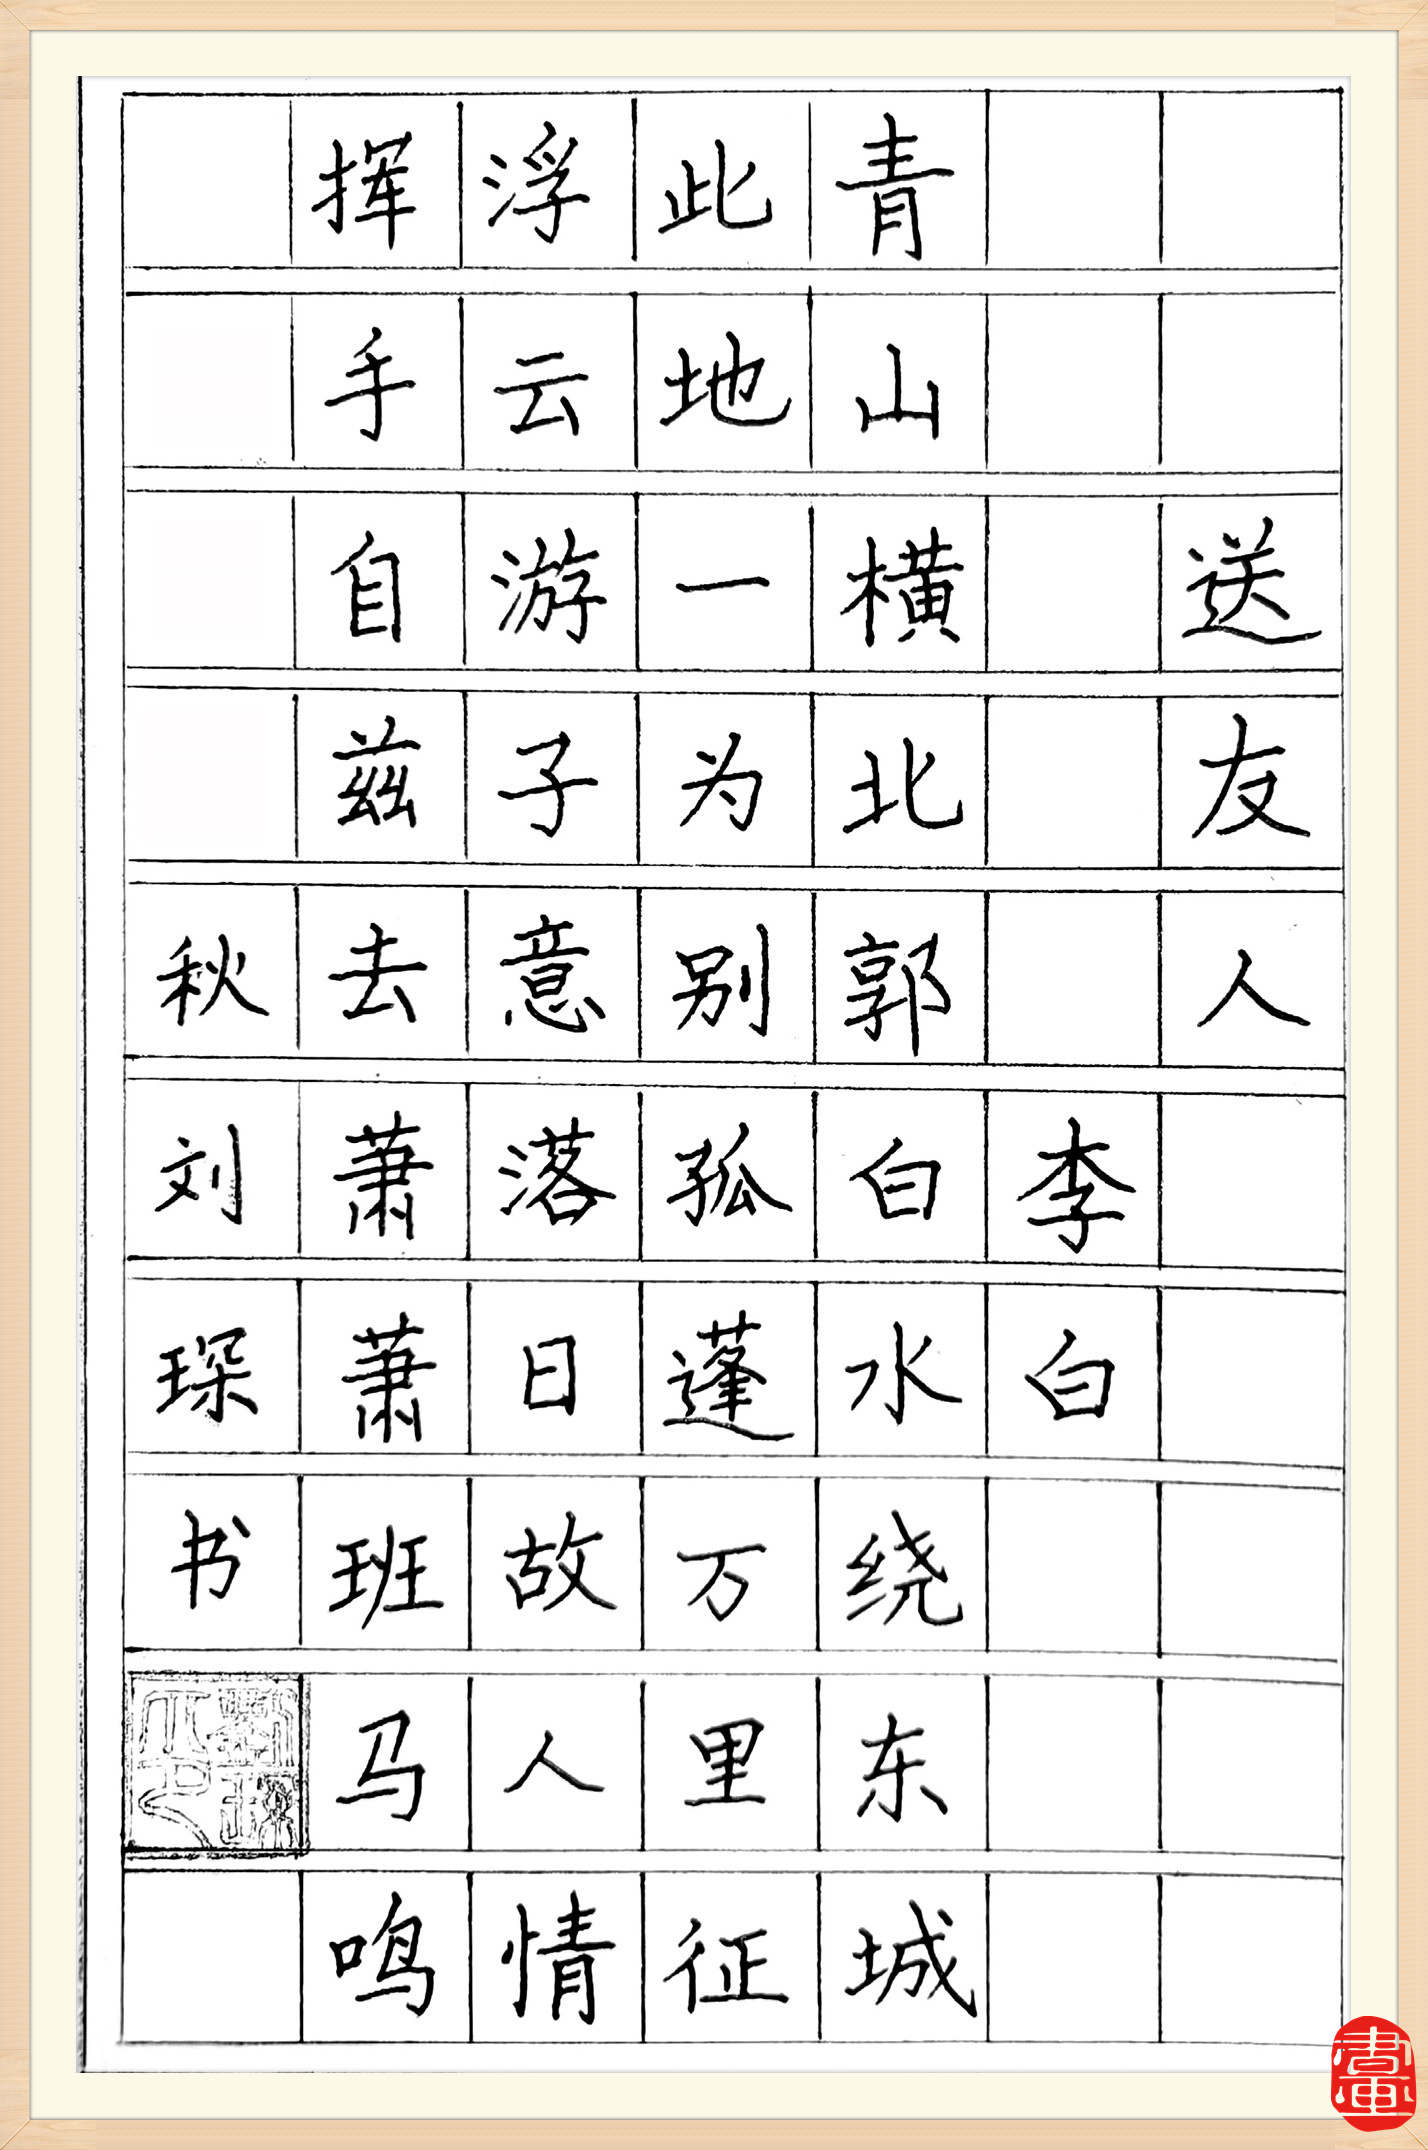 送友人
李白
青山横北郭白水绕东城
此地一为别孤蓬万里征
浮云游子意落日故人情
挥手自茲去萧萧班马鸣
秋刘琛书